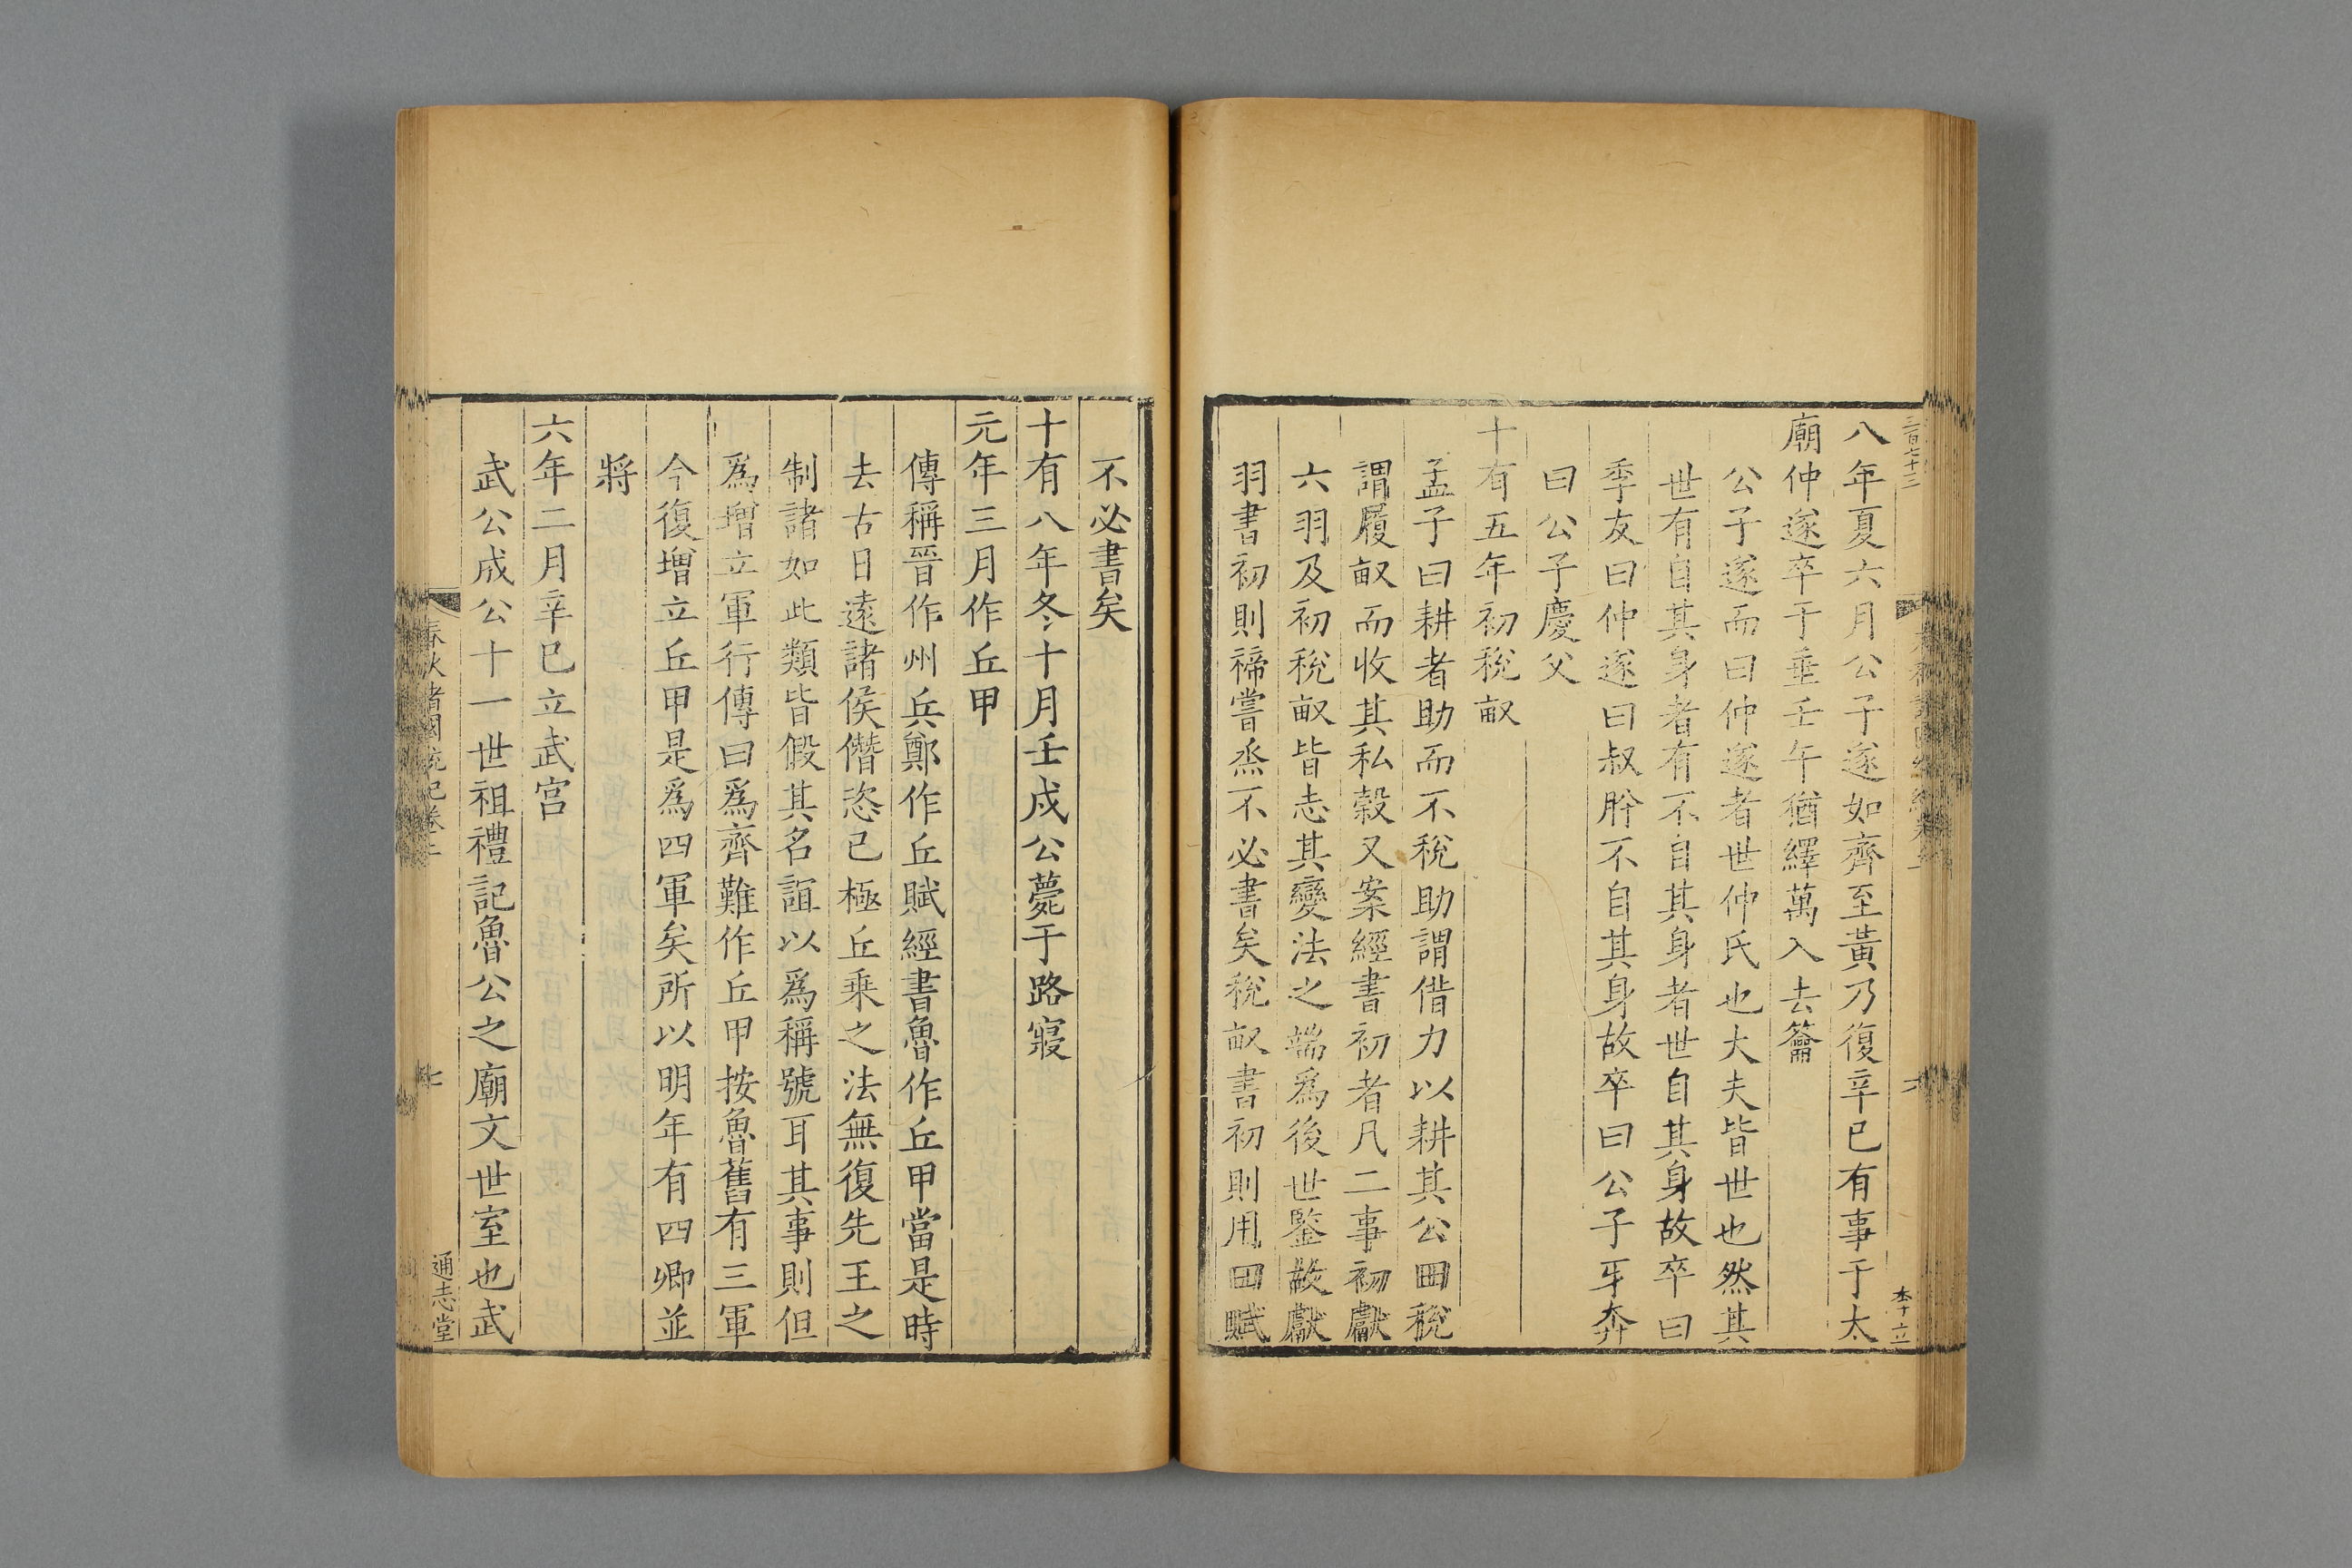 三百七十三
八年夏六月公子遂如齊至黃乃復辛巳有事于太
廟仲遂卒于垂壬午猶繹萬入去籥
公子遂而曰仲遂者世仲氏也大夫皆世也然其
世有自其身者有不自其身者世自其身故卒曰
季友曰仲遂曰叔肸不自其身故卒曰公子牙奔
曰公子慶父
十有五年初稅畝
孟子曰耕者助而不稅助謂借力以耕其公田稅
謂履畝而收其私穀又案經書初者凡二事初獻
六羽及初稅畝皆志其變法之端爲後世鑒故獻
羽書初則禘嘗烝不必書矣稅畝書初則用田賦
不必書矣
十有八年冬十月壬戌公薨于路寢
元年三月作丘甲
傳稱晉作州兵鄭作丘賦經書魯作丘甲當是時
去古日遠諸侯僭恣己極丘乗之法無復先王之
制諸如此類皆假其名誼以爲稱號耳其事則但
爲增立軍行傳曰爲齊難作丘甲按魯舊有三軍
今復增立丘甲是爲四軍矣所以明年有四卿並
將
六年二月辛巳立武宮
武公成公十一世祖禮記魯公之廟文世室也武
春秋諸國統紀卷上
七
通志堂